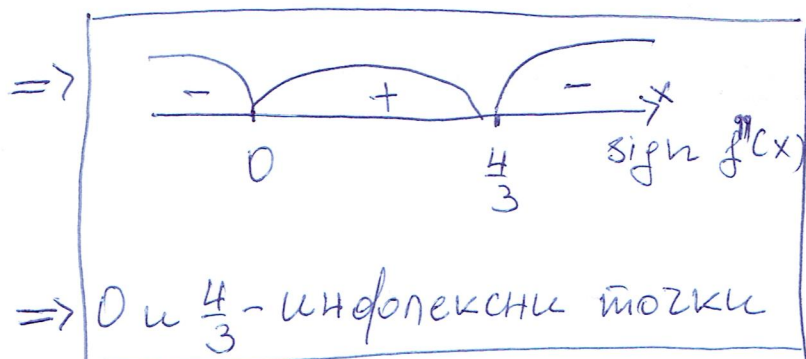 =>
- + - x
0 4/3 sign f"(x)
=> 0 и 4/3 - инфолексни точки